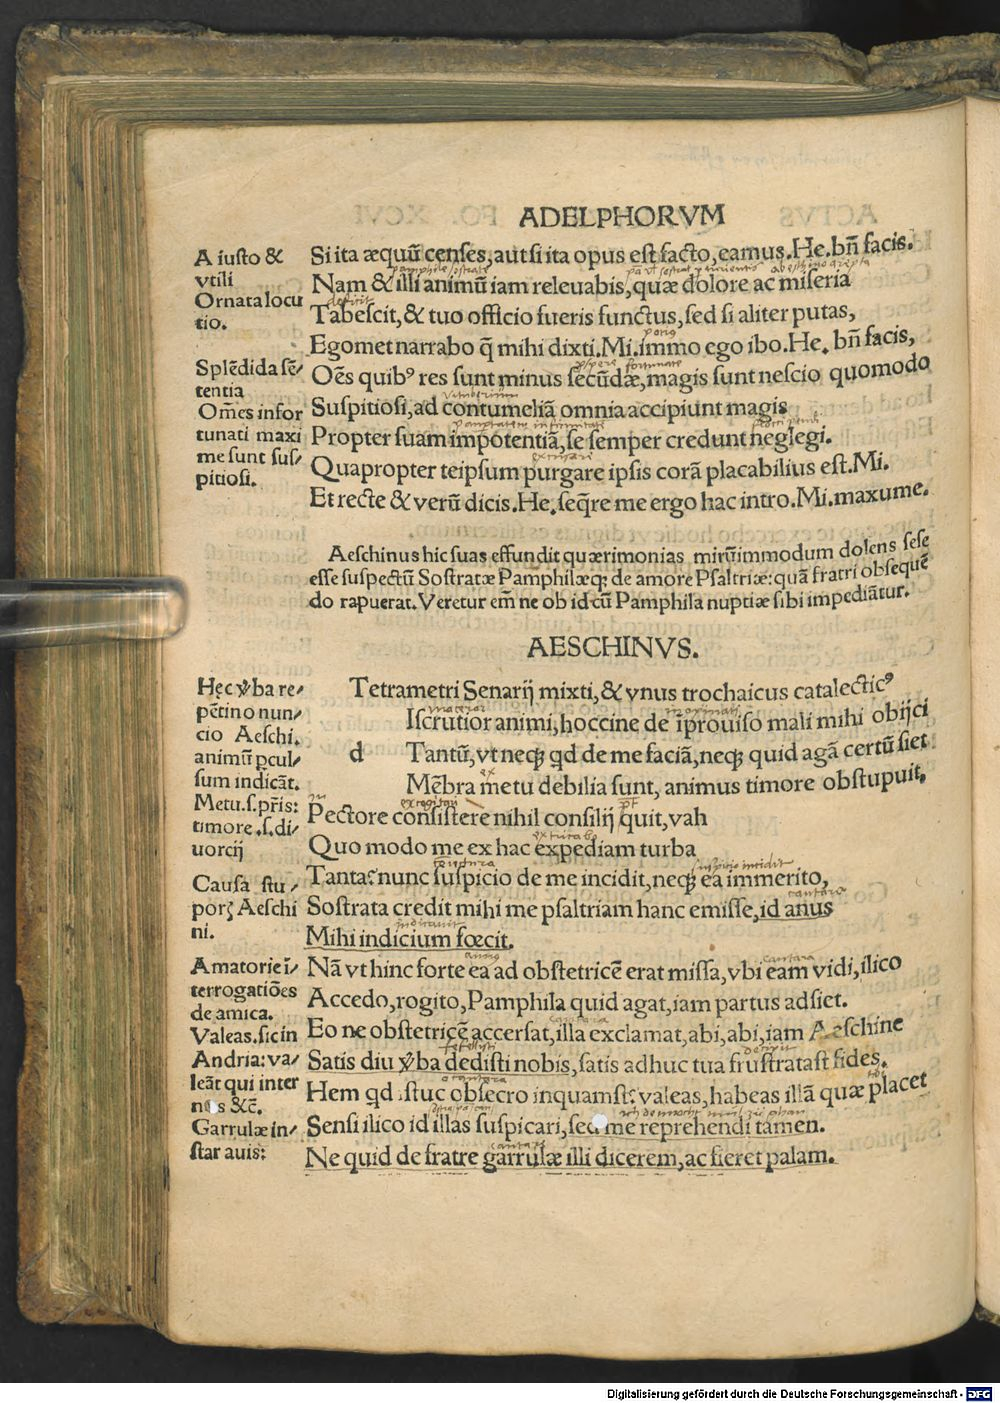 ADELPHORVM
A iusto &
vtili
Ornata locu
tio.
Splēdida sē/
tentia
Om̄es infor
tunati maxi
me sunt sus/
pitiosi.
Si ita æquū censes, aut si ita opus est facto, eamus. He. bn̄ facis.
Nam & illi animū iam releuabis, quæ dolore ac miseria
Tabescit, & tuo officio fueris functus, sed si aliter putas,
Egomet narrabo q̄ mihi dixti. Mi. immo ego ibo. He. bn̄ facis,
Oēs quibꝰ res sunt minus secūdæ, magis sunt nescio quomodo
Suspitiosi, ad contumeliā omnia accipiunt magis
Propter suam impotentiā, se semper credunt neglegi.
Quapropter teipsum purgare ipsis corā placabilius est. Mi.
Et recte & verū dicis. He. seq̄re me ergo hac intro. Mi. maxume.
Aeschinus hic suas effundit quærimonias mirūimmodum dolens sese
esse suspectū Sostratæ Pamphilæqꝫ de amore Psaltriæ: quā fratri obsequē
do rapuerat. Veretur em̄ ne ob id cū Pamphila nuptiæ sibi impediātur.
AESCHINVS.
Hęc v̄ba re/
pētino nun/
cio Aeschi.
animū ꝑcul/
sum indicāt.
Metu. s. pr̄is:
timore. s. di/
uorcij
Causa stu/
porꝫ Aeschi
ni.
Amatorie ī/
terrogatiōes
de amica.
Valeas. sic in
Andria: va/
leāt qui inter
nos &c̄.
Garrulæ in/
star auis:
Tetrametri Senarij mixti, & vnus trochaicus catalecticꝰ
d Iscrutior animi, hoccine de īprouiso mali mihi obijci
Tantū, vt neqꝫ qd de me faciā, neqꝫ quid agā certū siet
Mēbra metu debilia sunt, animus timore obstupuit,
Pectore consistere nihil consilij quit, vah
Quo modo me ex hac expediam turba
Tanta: nunc suspicio de me incidit, neqꝫ ea immerito,
Sostrata credit mihi me psaltriam hanc emisse, id anus
Mihi indicium fœcit.
Nā vt hinc forte ea ad obstetricē erat missa, vbi eam vidi, ilico
Accedo, rogito, Pamphila quid agat, iam partus adsiet.
Eo ne obstetricē accersat, illa exclamat, abi, abi, iam Aeschine
Satis diu v̄ba dedisti nobis, satis adhuc tua frustratast fides.
Hem qd istuc obsecro inquam st: valeas, habeas illā quæ placet
Sensi ilico id illas suspicari, sed me reprehendi tamen.
Ne quid de fratre garrulæ illi dicerem, ac fieret palam.
Digitalisierung gefördert durch die Deutsche Forschungsgemeinschaft - DFG